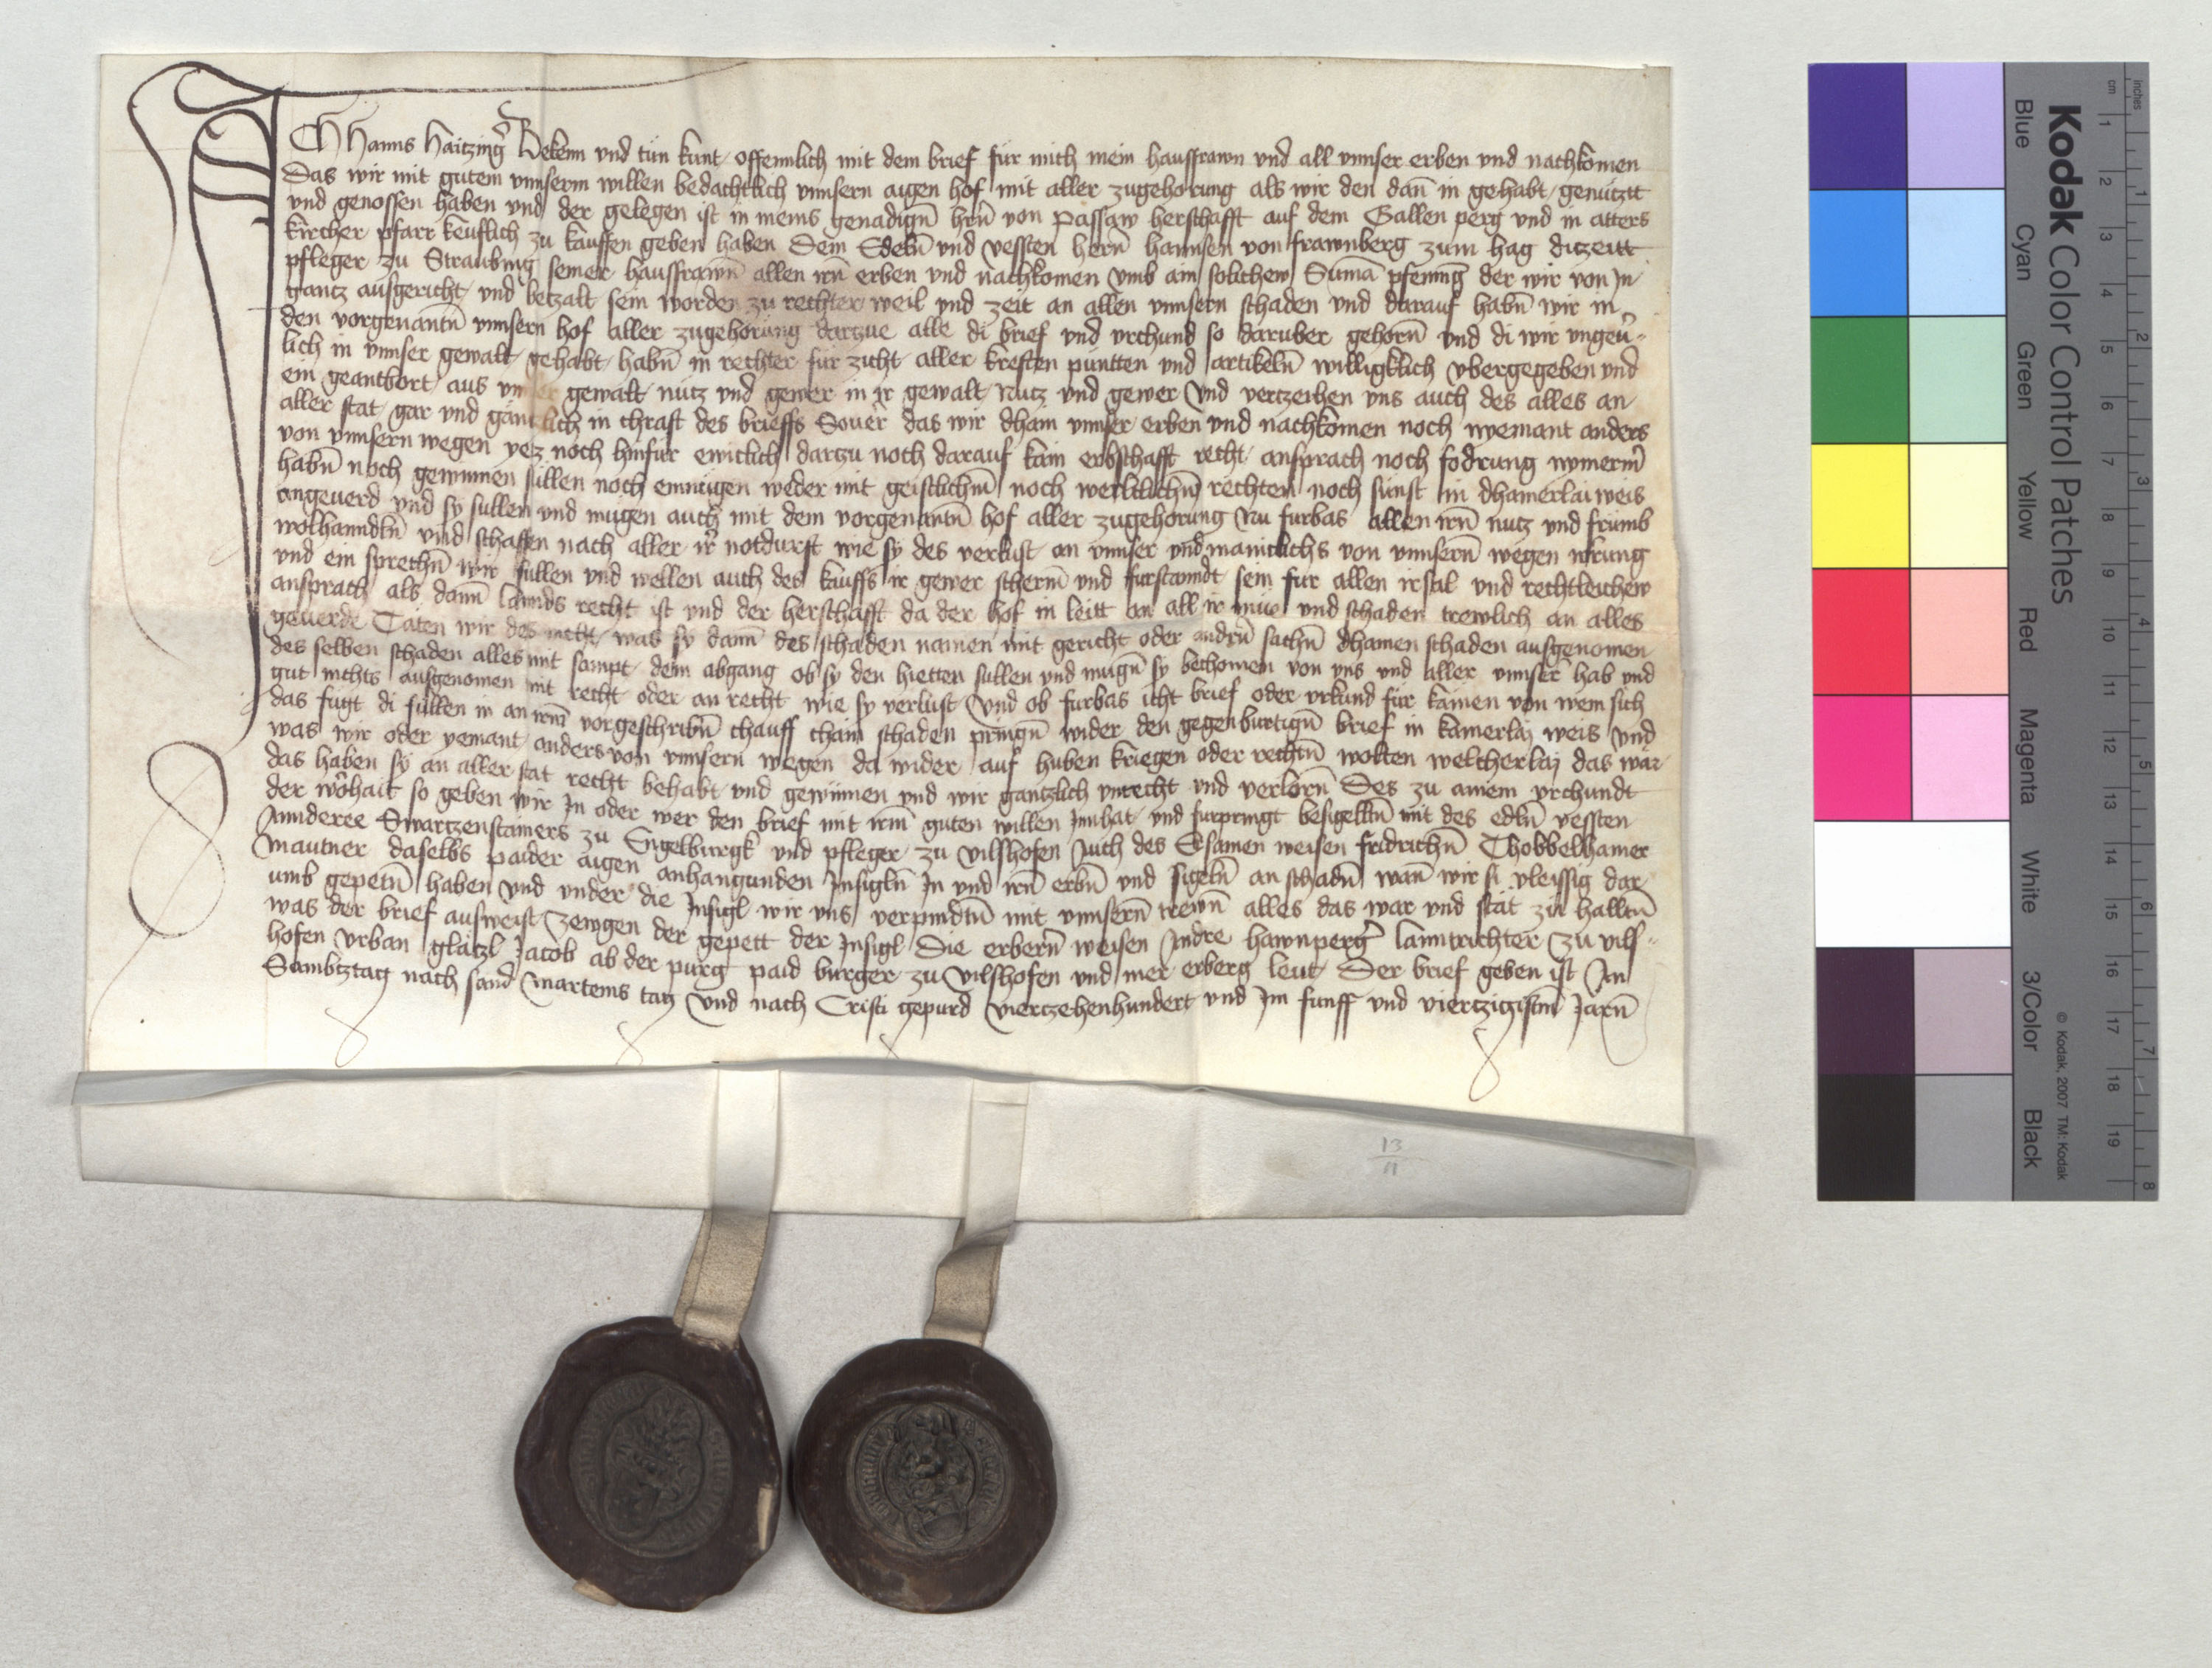 Ich Hanns Haitzingˀ Bekenn und tün kunt offennlich mit dem brief für mich mein hausfrawn und all vnnser erben und nachkomen
Das wir mit gutem vnnserm willen bedachtlich vnnsern aigen hof mit aller zugehorung als wir den dan̄ in gehabt genützt
und genossen haben und der gelegen ist in meins genadign̄ hrn̄ von Passaw herschafft auf dem Gallen perg und in atters
kircher pfarr keuflich zu kauffen geben haben Dem Edeln̄ und vessten hern̄ hannsen von frawnberg zum hag ditzeitt
pfleger zu Straubing seiner hausfrawn̄ allen irn̄ erben und nachkomen vmb ain solichew Sum̄a pfeninḡ der wir von In
gantz ausgericht und betzalt sein worden zu rechter weil und zeit an allen vnnsern schaden und darauf habn̄ wir in
den vorgenantn̄ vnnsern hof aller zugehorung dartzue alle di brief und vrchund so daruber gehorn̄ und di wir ungeu̇-
lich in vnnser gewalt gehabt habn̄ in rechter für zicht aller kreften püntten und artikeln̄ willigklich vbergegeben und
ein geantbort aus vnnser gewalt nütz und gewer in ir gewalt nutz und gewer Und vertzeihen uns auch des alles an
aller stat gar und gäntzlich in chraft des brieffs Souer das wir dhain vnnser erben und nachkomen noch nyemant anders
von vnnsern wegen yetz noch hinfür ewicklich dartzu noch darauf kain erbschafft recht ansprach noch fodrung nymerm̄
habn̄ noch gewinnen süllen noch enmügen weder mit geistlichm̄ noch werltlichn̄ rechten noch sünst in dhainerlai weis
angeuerd und sy sullen und mugen auch mit dem vorgenantn̄ hof aller zugehorung Nu furbas allen irn̄ nutz und frümb
wolhanndtln̄ und schaffen nach aller irˀ notdurft wie sy des verlust an vnnser und manicklichs von vnnsern̄ wegen irrung
und ein sprechn̄ wir süllen und wellen auch des kauffs ir gewer scherm̄ und fürstanndt sein fur allen irsal und rechtleichew
ansprach als dann̄ lannds recht ist und der herschafft da der hof in leitt an all ir müe und schaden trewlich an alles
geuerde Täten wir des nicht was sy dann̄ des schaden namen mit gericht oder andrn̄ sachn̄ dhainen schaden ausgenomen
des selben schaden alles mit sampt dem abgang ob sy den hietten sullen und mugn̄ sy bechomen von uns und aller vnnserˀ hab und
gut nichts ausgenomen mit recht oder an recht wie sy verlust Und ob furbas icht brief oder vrkund für kämen von wem sich
das fugt di süllen in an irm̄ vorgeschribn̄ chauff chain schaden pringn̄ wider den gegenburtign̄ brief in kainerlaj weis Und
was wir oder yemant anders von vnnsern wegen da wider auf huben kriegen oder rechtn̄ wolten welcherlaj das wär
das haben sy an aller stat recht behabt und gewünnen und wir gantzlich unrecht und verlorn̄ Des zu ainem vrchundt
der worhait so geben wir In oder wer den brief mit irm̄ guten willen Innhat und furpringt besigelltn̄ mit des edln̄ vessten
Annderee Swartzenstainers zu Engelburgk und pfleger zu Vilshofen Auch des Ersamen weisen fridrichn̄ Thobbelhamer
Mautner daselbs paider aigen anhangunden Insigln̄ In und irn̄ erbn̄ und sigeln̄ an schadn̄ wan̄ wir si vleissig dar
umb gepetn̄ haben Und under die Insigl wir uns verpindtn̄ mit vnnsern̄ trewn̄ alles das war und stät zu halltn̄
was der brief ausweist Zewgen der gepett der Insigl Die erbern̄ weisen Andre hawnpergˀ lanntrichter zu vils-
hofen Vrban glätzl Jacob ab der purg paid burger zu Vilshofen und mer erberg leut Der brief geben ist Am
Sambtztag nach sand Marteins tag Und nach Cristi gepurd Viertzehenhundert und Im funff und viertzigistm̄ Jarn̄
13
11
Kodak Color Control Patches
Blue Cyan Green Yellow Red Magenta White 3/Color Black
© Kodak, 2007 TM: Kodak
cm 1 2 3 4 5 6 7 8 9 10 11 12 13 14 15 16 17 18 19
inches 1 2 3 4 5 6 7 8